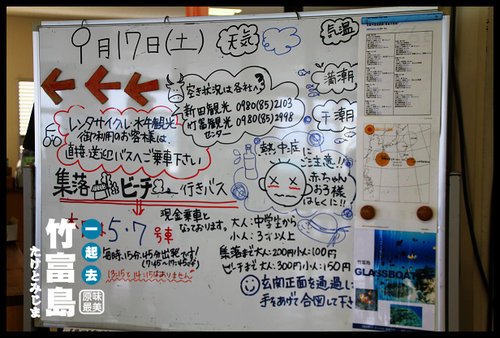 9月17日(土)
天気
気温
満潮
干潮
空き状況は各社へ
新田観光 0980(85)2103
竹富観光 0980(85)2998
センター
レンタサイクル・水牛観光
御利用のお客様は、
直接、送迎バスへご乗車下さい
熱中症に
ご注意!!
赤ちゃん
お子様
ほとくに!!
集落 ビーチ 行きバス
5.7号車
現金乗車と
なっております。
大人:中学生から
小人:3才以上
毎時、15分、45分出発です!
集落まで大人:200円小人:100円
ビーチまで大人:300円小人:150円
13:15と14:15はありません
玄関正面を通過し
手をあげて合図して下
一起去
竹富島
たけとみじま
原味最美
竹富島
GLASSBOAT